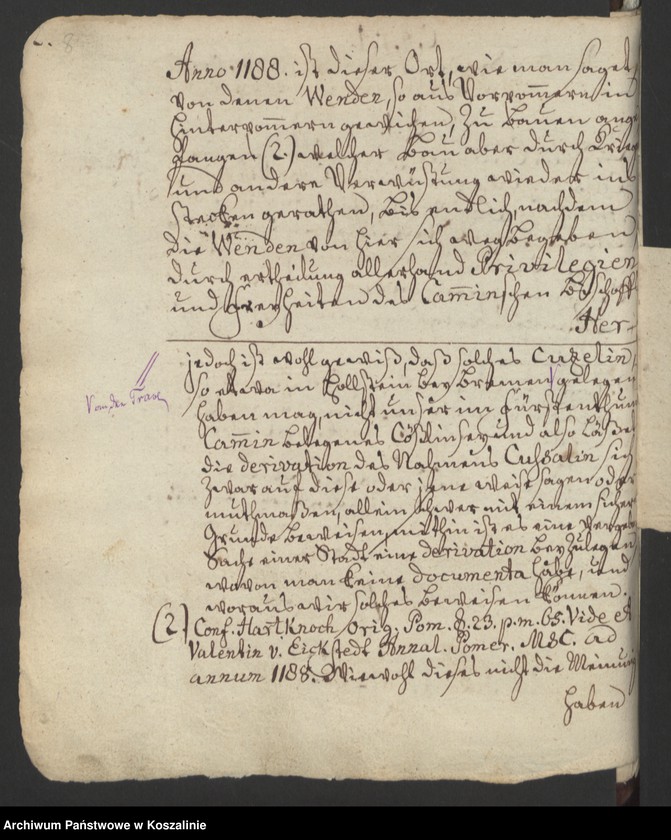 8
Anno 1188. ist dieser Ort, wie man saget,
von denen Wenden, so aus Vorpommern in
Hinterpommern gewichen, zu bauen ange
fangen (2.) welcher Bau aber durch Krieg
und andere Verwüstung wieder ins
stecken gerathen, bis endlich, nachdem
die Wenden von hier sich wegbegeben
durch ertheilung allerhand Privilegien
und Freyheiten des Camminschen Bischoffs
Her-
jedoch ist wohl gewiß, daß solches Cuzelin,
so etwa in Hollstein bey Bremen gelegen
Van der Trave
haben mag, nicht unser im Fürstenthum
Cammin belegenes Cößlin sey und also läßet
die derivation des Nahmens Cussalin sich
zwar auf diese oder jene weise sagen oder
muthmaßen, allein schwer mit einem sichern
Grunde beweisen, mithin ist es eine
Sache einer Stadt eine derivation beyzulegen
wovon man keine documenta habe, und
woraus wir solches beweisen können.
(2) Conf. Hartknoch Orig. Pom. §. 23. p. m. 65. Vide et
Valentin v. Eickstedt Annal. Pomer. MSC. ad
annum 1188. Wiewohl dieses nicht die Meinung
haben
Archiwum Państwowe w Koszalinie